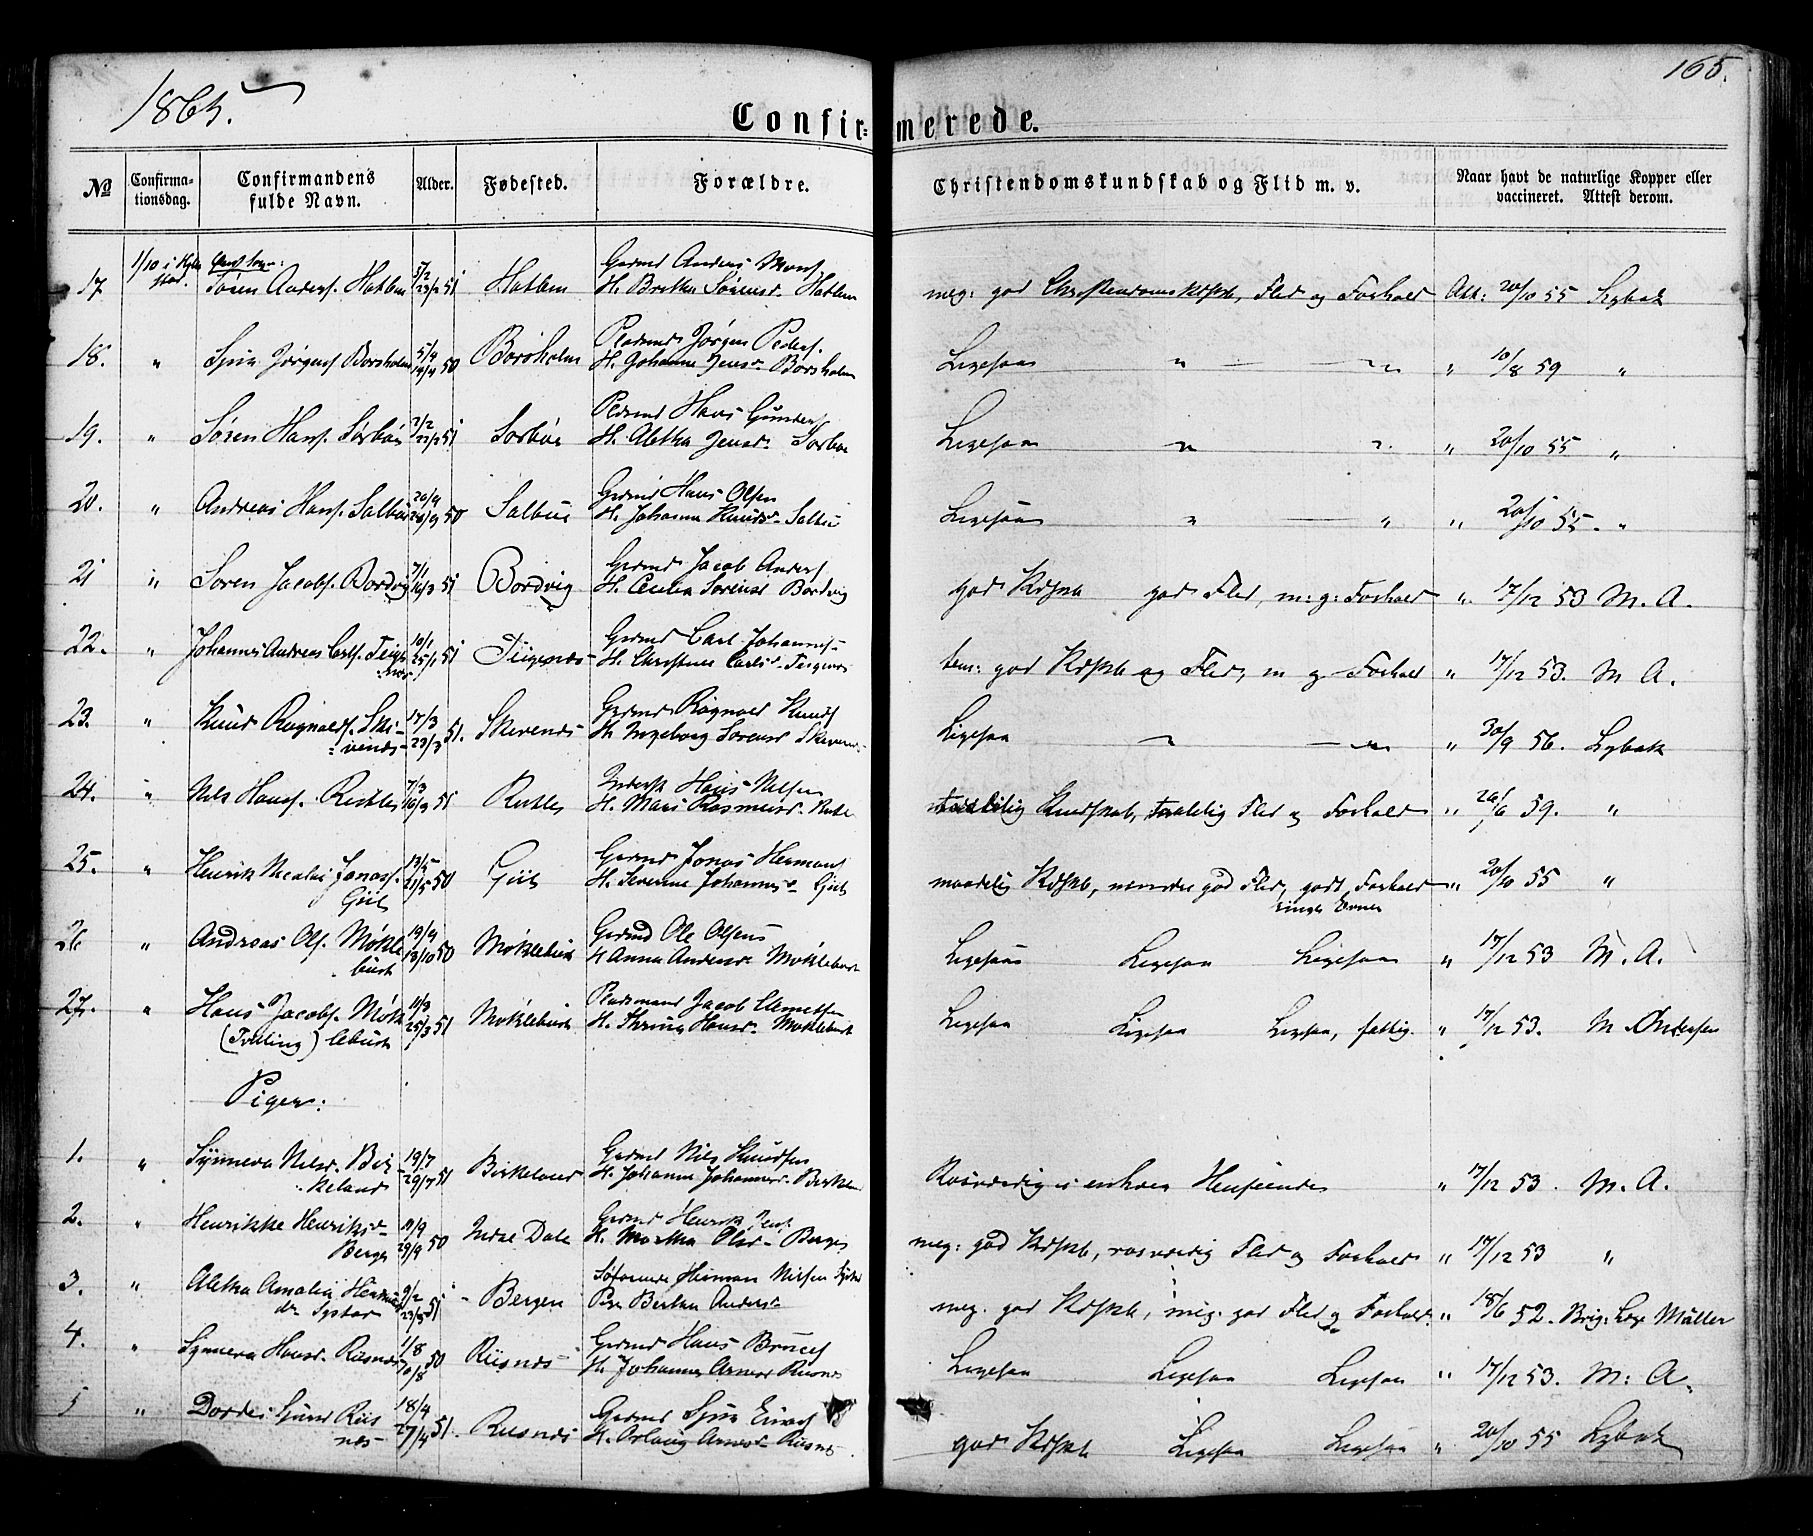 1865.
165.
Confirmerede.
No
Confirmationsdag.
Confirmandens fulde Navn.
Alder.
Fødested.
Forældre.
Christendomskundskab og Flid m. v.
Naar havt de naturlige Kopper eller vaccineret. Attest derom.
17 1/10 i Søren Anders. Hatlem 5/2 23/2 51 Hatlem Garmd Anders Mons
H. Brethe Sørensd. Hatlem
meg: god Christendomskdskb, Flid og Forhold Att: 20/10 55 Lybek
18. " Jørgens Borsholm 5/4 14/4 50 Borsholm Pladsmd Jørgen Peders.
H. Johanne Jensd. Borsholm
Ligesaa " " " 10/8 59 "
19. " Søren Hans. Sørbøe 2/2 51 Sørbøe Pladsmd Hans Gunders
H. Aletha Jensd. Sørbøe
Ligesaa " " " 20/10 55 "
20. " Andreas Hans. Salbue 20/9 50 Salbue Garmd Hans Olsen
H. Johanne Knudsd. Salbu
Ligesaa " " " 20/10 55. "
21 " Søren Jacobs. Bordvig 7/1 16/3 51 Bordvig Garmd Jacob Anders
H. Cecilia Sørensd Bordvig
god Kdskb god Flid, m: g: Forhold " 17/12 53 M. A.
22. " Johannes Andreas Carls. Teige-
næs 10/1 25/1 51 Teigenæs Garmd Carl Johannes
H. Christine Carlsd. Teigenæs
tem: god Kdskb og Flid, m g Forhold " 17/12 53. M A.
23. " Knud Ragnalds. Ski-
venæs 17/3 23/3 51. Skevenæs Garmd Ragnald Knuds
H. Ingeborg Sørensd Skeven
Ligesaa " " " 30/9 56. Lybek
24. " Nils Hans. Risthe 7/3 16/3 51 Hans Nilsen
H. Mari Rasmusd.
taalelig Kundskab, taalelig Flid og Forhold " 59. "
25. " Henrik Nicolai Jonas.
Giil 13/5 21/5 50 Giil Garmd Jonas Hermans
H. Severine Johannesd. Giil
maadelig Kdskb, mindre god Flid, godt Forhold " 20/10 55 "
ringe Evner
26 " Andreas Ols. Møkle
bust 19/9 13/10 50 Møklebust Garmd Ole Olsens
H Anna Andersd. Møklebust
Ligesaa Ligesaa Ligesaa " 17/12 53 M. A.
27. " Hans Jacobs. Møk
(Tvilling) lebust 11/3 25/3 51 Møklebust Pladsmand Jacob Clemetsen
H. Hansd. Møklebust
Ligesaa Ligesaa Ligesaa, fattig. " 17/12 53. M Andersen
Piger:
1. " Synneva Nilsd. Bir-
keland 19/7 29/7 51 Birkeland Garmd Nils Knudsen
H. Johanna Johannesd. Birkel
Rosværdig i enhver Henseende " 17/12 53. M. A.
2. " Henrikke Henriksd
Berge 11/9 29/9 50 Indre Dale Garmd Henrik Jens
H. Martha Olsd. Berge
meg: god Kdskb, rosværdig Flid og Forhold " 17/12 53 "
3. " Aletha Amalia Hermans
dr 9/2 51 Bergen Herman Nilsen
Pige Bertha Andersd.
meg. god Kdskb, meg: god Flid og Forhold. " 18/6 52. Brig: Lge Müller
4. " Synneva Hansd. Riisnæs 1/8 10/8 50 Riisnæs Garmd Hans
H. Johanna Arnesd Riisnæs
Ligesaa Ligesaa Ligesaa " 17/12 53. M: A.
5 " Dorthe Riis
næs 18/4 27/4 51. Riisnæs Garmd
H. Arnesd Riisnæs
god Kdskb Ligesaa Ligesaa " 20/10 55 Lybek